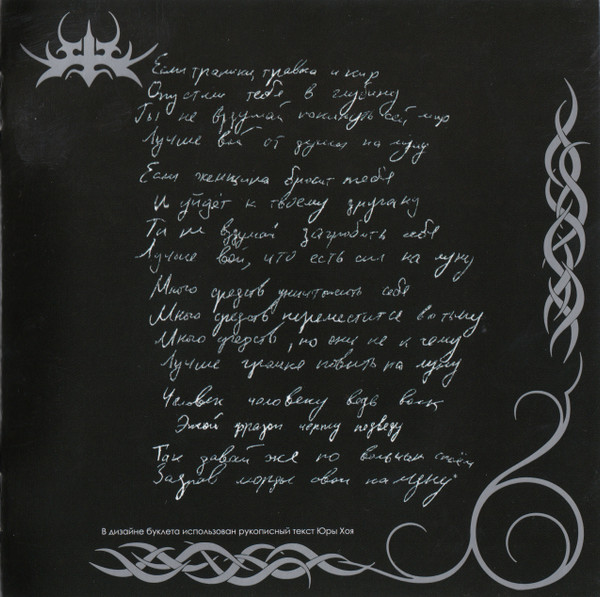 Если травка, травка и кир
Опустят тебя в глубину
Ты не вздумай покинуть сей мир
Лучше вой от души на луну
Если женщина бросит тебя
И уйдёт к твоему другану
Ты не вздумай загробить себя
Лучше вой, что есть сил на луну
Много средств уничтожить себя
Много средств переместится во тьму
Много средств, но они не к чему
Лучше громко повыть на луну
Человек человеку ведь волк
Этой фразой черту подведу
Так давай же по волчьи споём
Задрав морды свои на луну
В дизайне буклета использован рукописный текст Юры Хоя